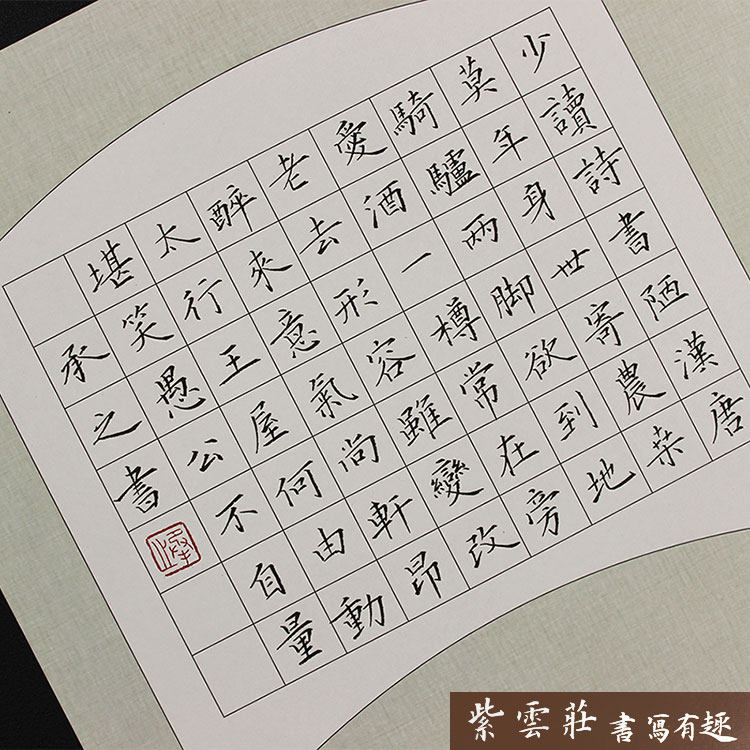 少讀詩書陋漢唐
莫年身世寄農桒
騎驢兩脚欲到地
愛酒一樽常在旁
老去形容雖變改
醉來意氣尚軒昂
太行王屋何由動
堪笑愚公不自量
承之書
紫雲莊 書寫有趣